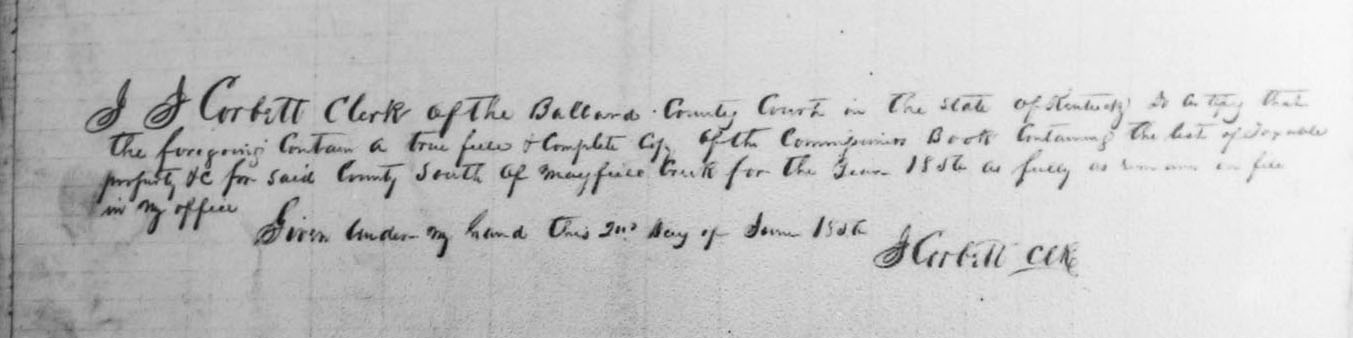 I J Corbett Clerk of the Ballard County Court in the State of Kentucky Do Certify that
the foregoing Contain a true full & Complete Copy of the Commissioners Book Containing the list of Taxable
property &C for said County South of Mayfield Creek for the Year 1856 as fully as remains on file
in my office
Given Under my hand this 2nd Day of June 1856
J Corbett Clk